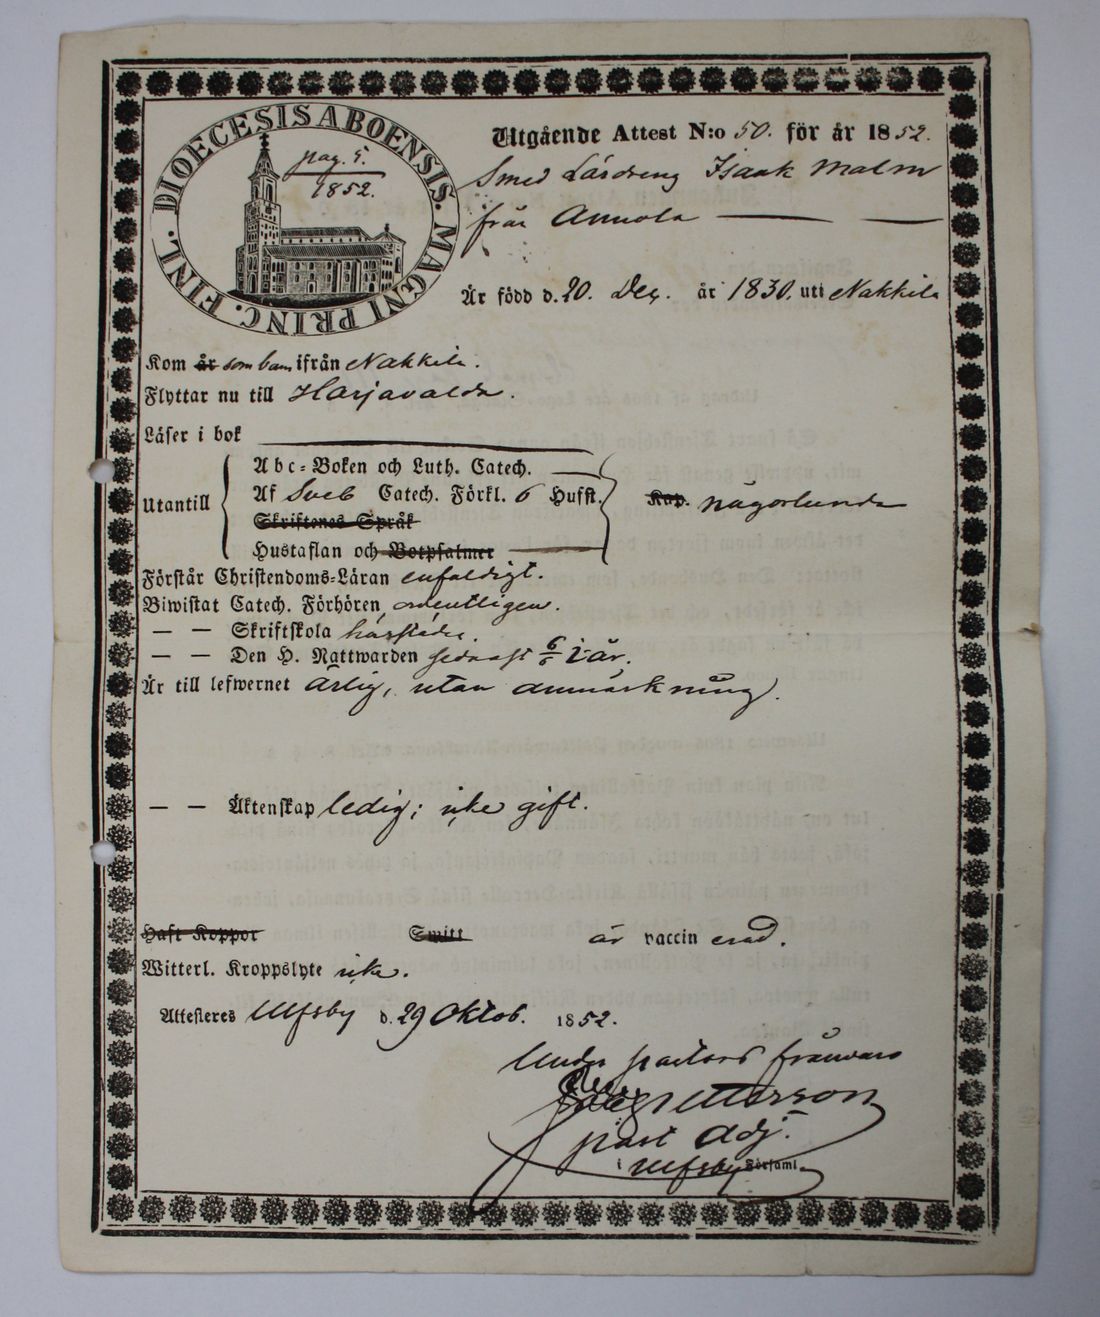 DIOECESIS ABOENSIS. MAGNI PRINC. FINL.
pag. 5.
1852.
Utgående Attest N:o 50. för år 1852.
Smed Lärdreng Isaak Malm
från Annola
Är född d. 20. Dec. år 1830. uti Nakkila
Kom år som barn ifrån Nakkila.
Flyttar nu till Harjavalda.
Läser i bok
Utantill
Abc-Boken och Luth. Catech.
Af Sveb Catech. Förkl. 6 Hufst.
Skriftenes Språk
Hustaflan och Botpsalmer
Kap. någorlunda
Förstår Christendoms-Läran enfaldigt.
Biwistat Catech. Förhören ordentligen.
— — Skriftskola härstädes.
— — Den H. Nattwarden sednast 6/6 i år.
Är till lefwernet ärlig, utan anmärkning.
— — Äktenskap ledig; icke gift.
Haft Koppor Smitt är vaccinerad.
Witterl. Kroppslyte icke.
Attesteres Ulfsby d. 29 Oktob. 1852.
Under pastors frånvaro
Petterson
past. Adj.
i Ulfsby Församl.